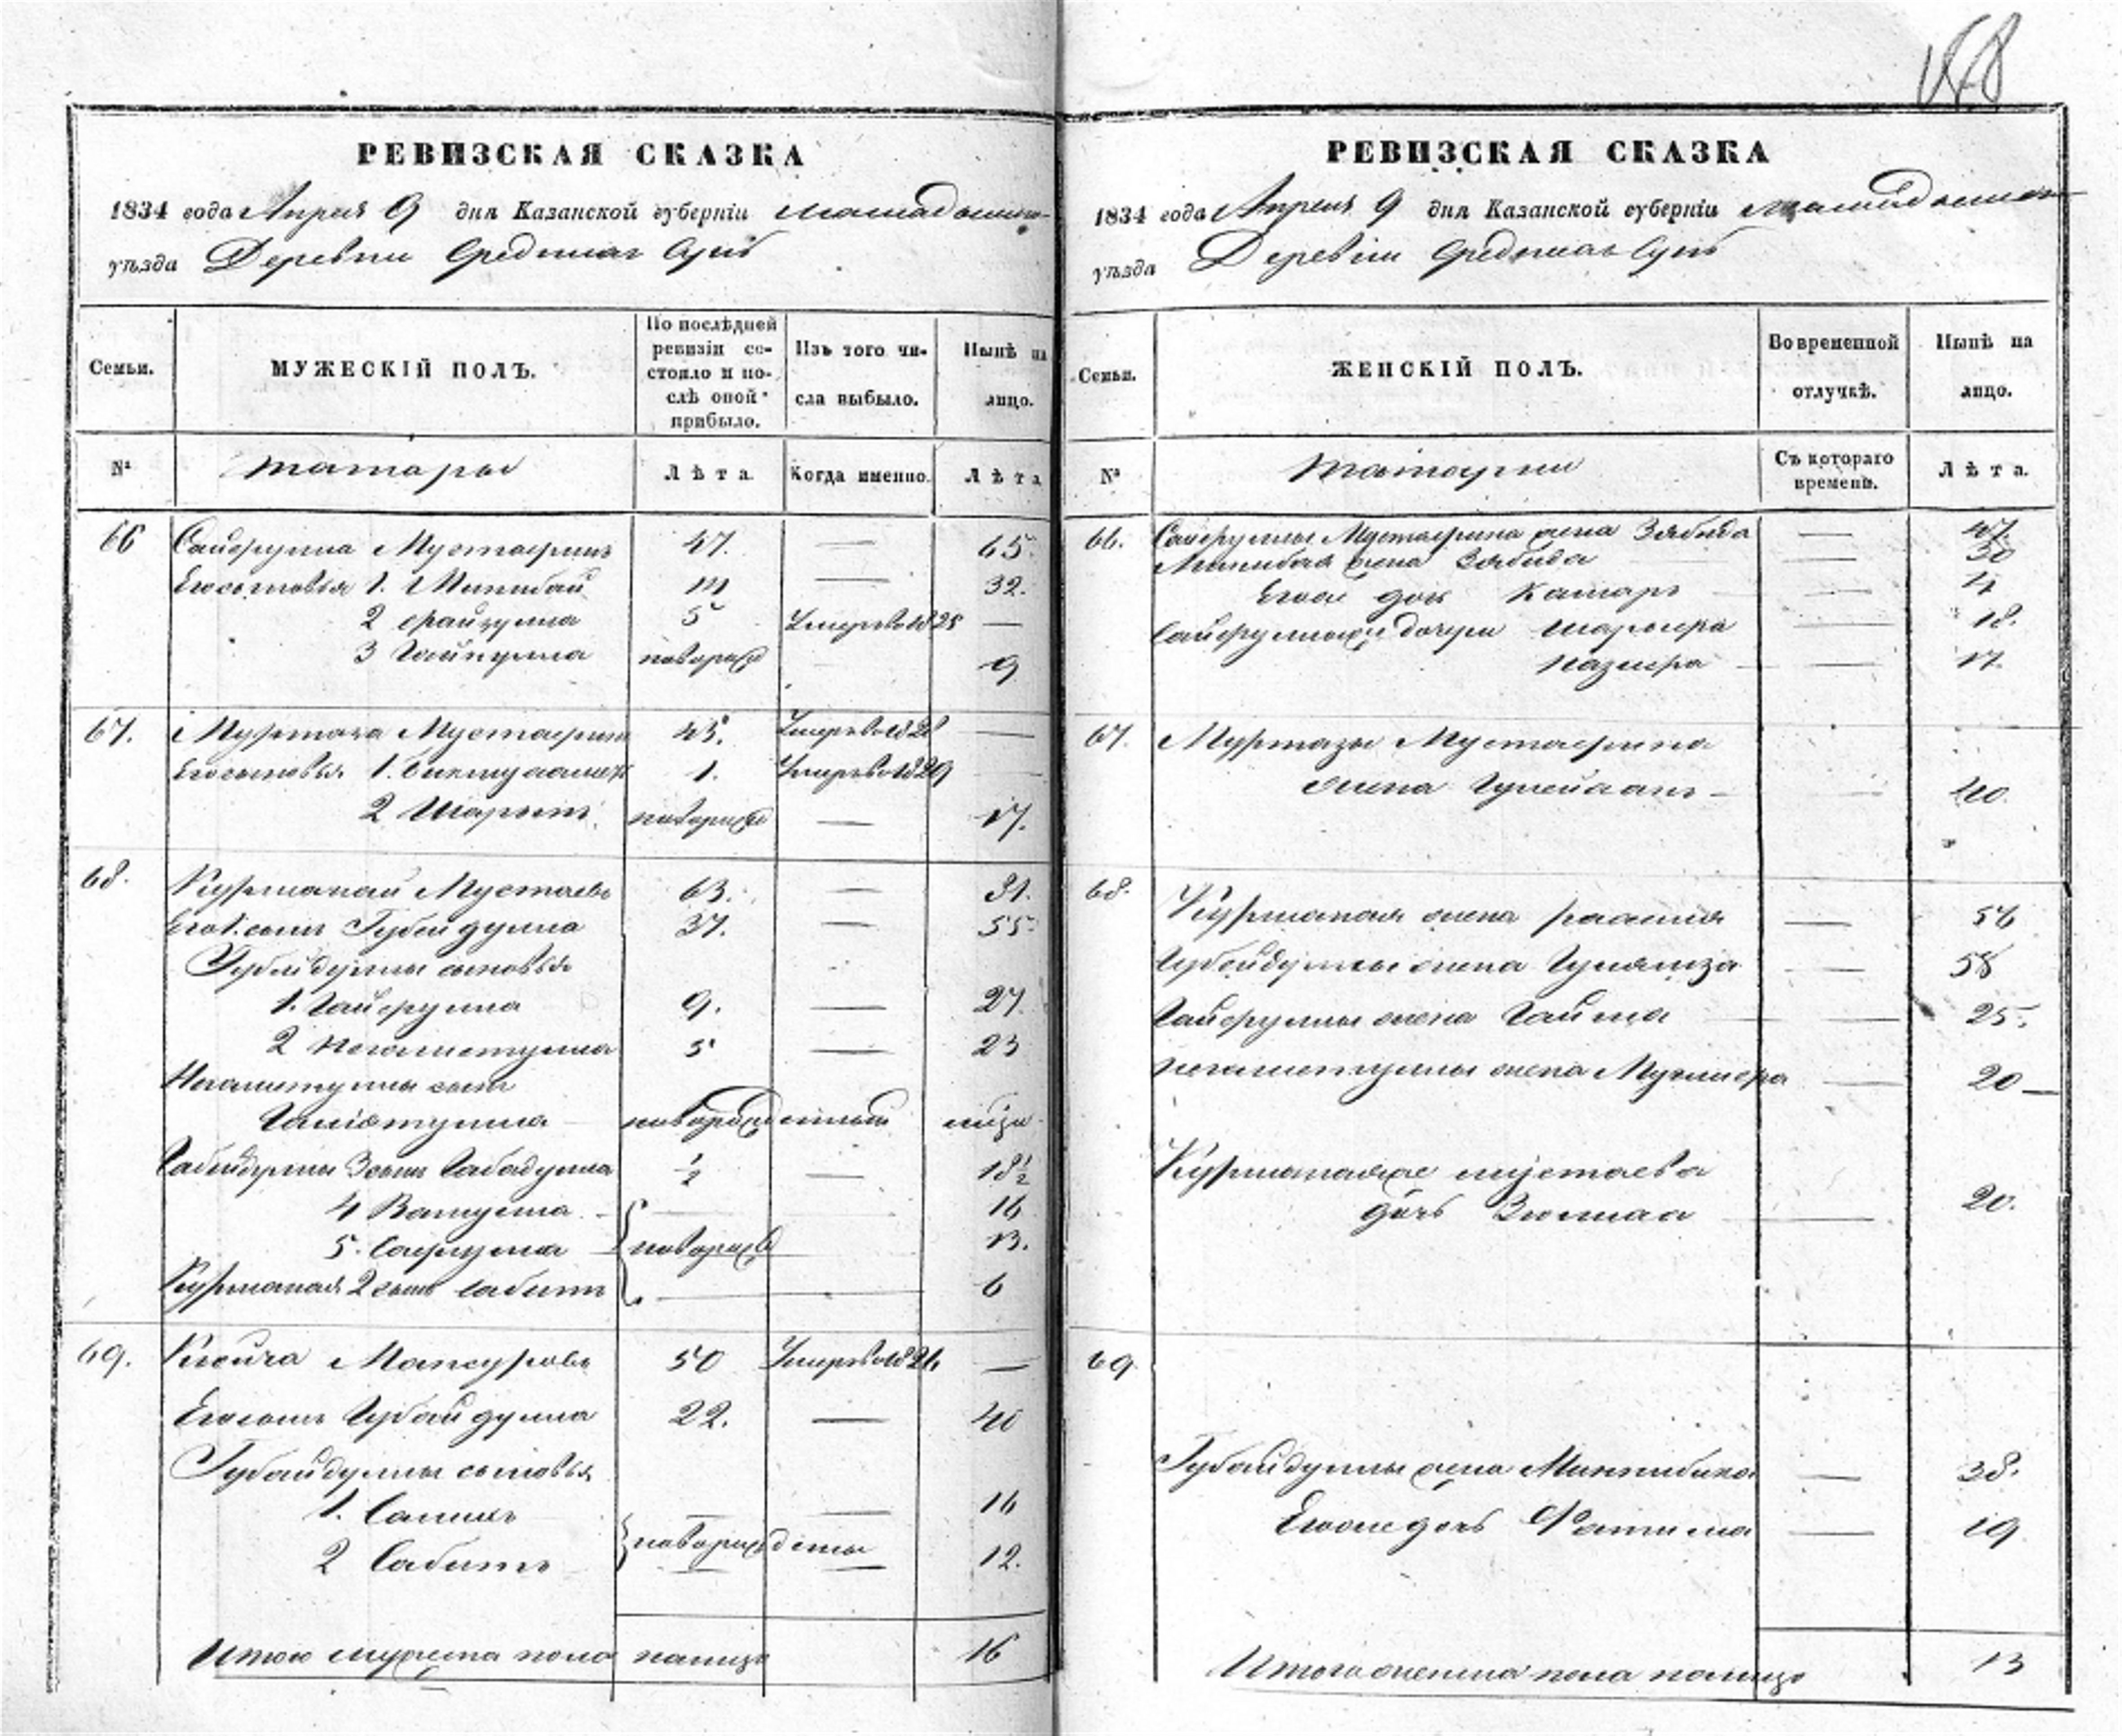 188
РЕВИЗСКАЯ СКАЗКА
1834 года Апреля 9 дня Казанской губернiи Мамадышско-
уѣзда Деревни Средних Сунъ
Семьи.
МУЖЕСКIЙ ПОЛЪ.
По послѣдней ревизiи состояло и послѣ оной прибыло.
Изъ того числа выбыло.
Нынѣ на лицо.
№
татары
Лѣта
Когда именно.
Лѣта
66 Сайфулла Мустафинъ 47. — 65.
Егосыновья 1. Минибай 14 — 32.
2 Файзулла 5 Умеръвъ1825 —
3 Гайнулла новорожд 9
67. Муртаза Мустафинъ 45. Умеръвъ1828 —
Егосыновья 1. 1. Умеръвъ1829 —
2 Шарыпъ новорожд — 17.
68. Курманай Мустаевъ 63. — 81.
Его1.сынъ Губейдулла 37. — 55.
Губейдуллы сыновья
1. Гайфулла 9. — 27.
2 Негаметулла 5 — 23
Негаметуллы сынъ
новорожденный
Габейдуллы 3сынъ Габадулла ½ — 18½
4 16
5. Сафиулла новорожд 13.
Курманая 2сынъ Сабитъ 6
69. Мансуровъ 50 Умеръвъ1826 —
Егосынъ Губайдулла 22. — 40
Губайдуллы сыновья
1. Салихъ — — 16
новорождены
2 Сабитъ — — 12.
Итого мужеска пола налицо 16
РЕВИЗСКАЯ СКАЗКА
1834 года Апреля 9 дня Казанской губернiи Мамадышско
уѣзда Деревни Средних Сунъ
Семьи.
ЖЕНСКIЙ ПОЛЪ.
Во временной отлучкѣ.
Нынѣ на лицо.
№
татарки
Съ котораго времени.
Лѣта.
66. Сайфуллы Мустафина жена Зябида — 47.
Минибая жена Зябида — 30
Ея дочь Камаръ — 4
Сайфуллы дочери — 18.
Назифа — 17.
67. Муртазы Мустафина
жена — 40.
68. Курманая жена — 56
Губейдуллы жена — 58
Гайфуллы жена — 25.
Негаметуллы жена — 20
Мустаева
дочь — 20.
69.
Губайдуллы жена Минлибика — 38.
дочь Фатима — 19
Итого женска пола налицо 13